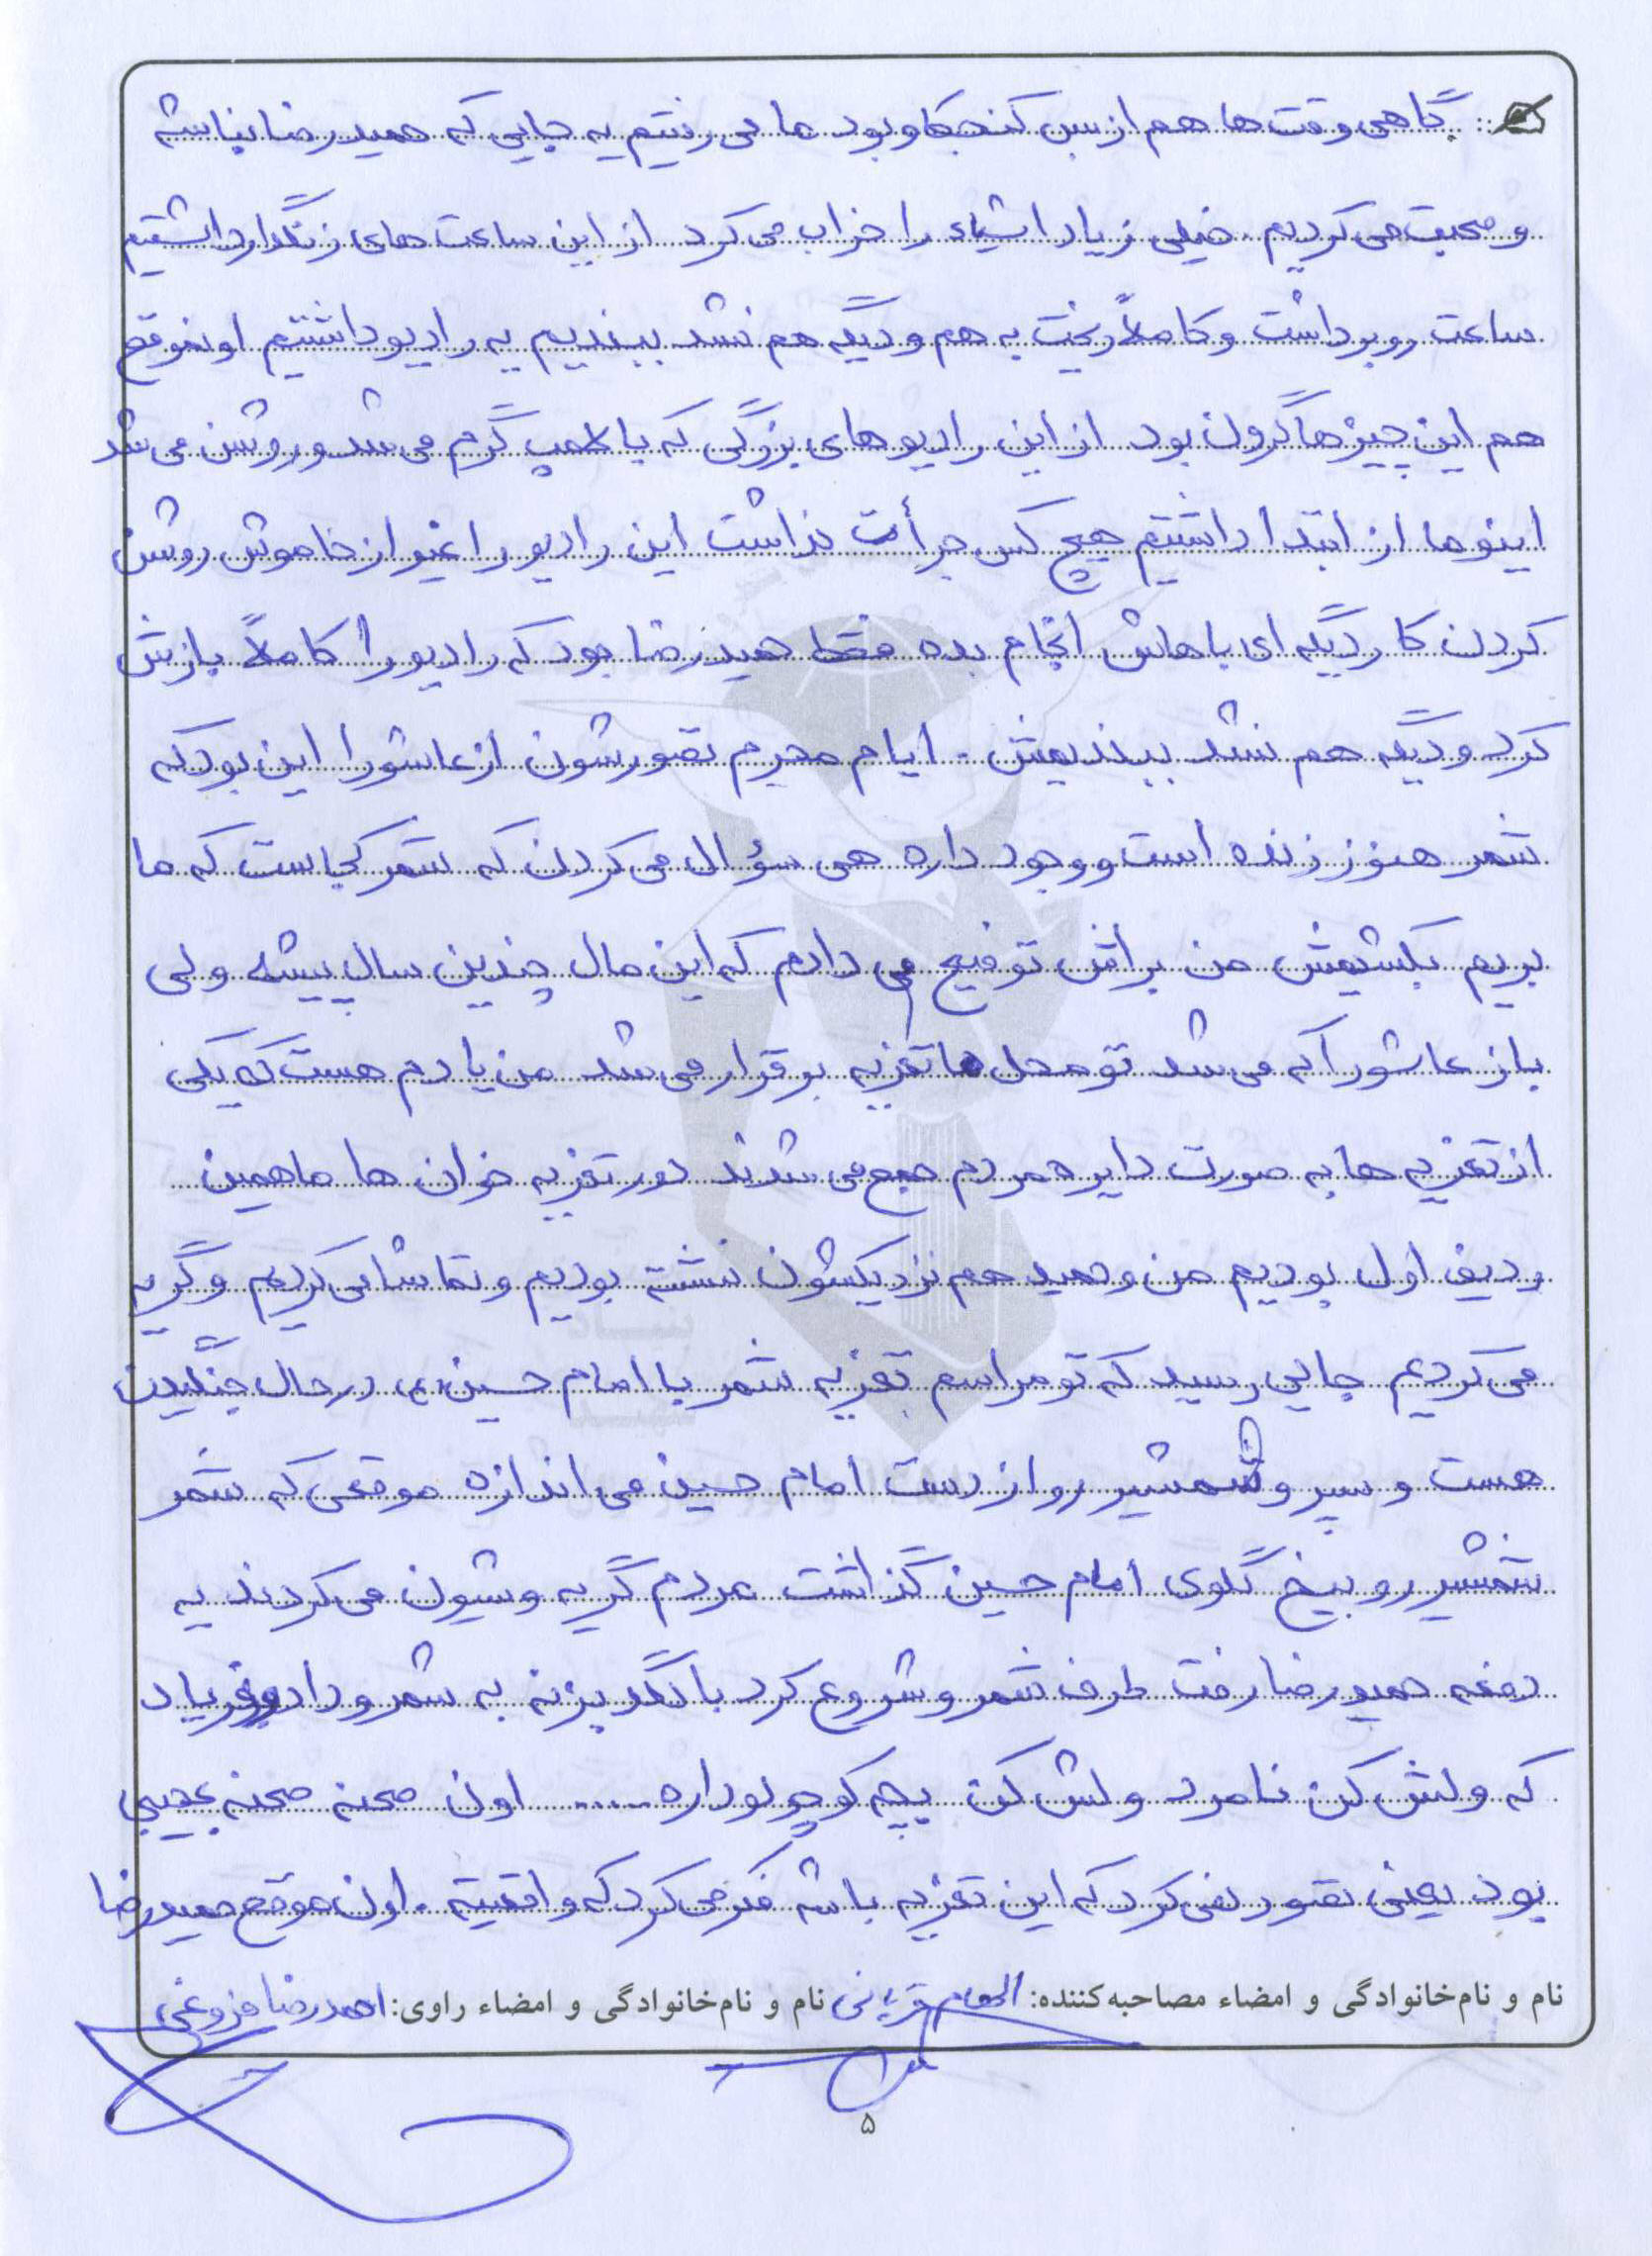 گاهی وقت ها هم از بس کنجکاو بود ما می رفتیم یه جایی که حمیدرضا نباشه
و صحبت می کردیم. خیلی زیاد اشیاء را خراب می کرد از این ساعت های زنگدار داشتیم
ساعت رو برداشت و کاملاً ریخت به هم و دیگه هم نشد ببندیم یه رادیو داشتیم اونموقع
هم این چیزها گرون بود از این رادیوهای بزرگی که با لامپ گرم می شد و روشن می شد
اینو ما از ابتدا داشتیم هیچ کس جرأت نداشت این رادیو را غیر از خاموش روشن
کردن کار دیگه ای باهاش انجام بده فقط حمیدرضا بود که رادیو را کاملاً بازش
کرد و دیگه هم نشد ببندیمش. ایام محرم تصورشون از عاشورا این بود که
شمر هنوز زنده است و وجود داره همی سؤال می کردن که شمر کجاست که ما
بریم بکشیمش من براش توضیح می دادم که این مال چندین سال پیشه ولی
باز عاشورا که می شد تو محل ها تعزیه برقرار می شد من یادم هست که یکی
از تعزیه ها به صورت دایره مردم جمع می شدند دور تعزیه خوان ها ما همین
ردیف اول بودیم من و حمید هم نزدیکشون نشسته بودیم و تماشا می کردیم و گریه
می کردیم جایی رسید که تو مراسم تعزیه شمر با امام حسین (ع) در حال جنگیدن
هست و سپر و شمشیر رو از دست امام حسین می اندازه موقعی که شمر
شمشیر رو بیخ گلوی امام حسین گذاشت مردم گریه و شیون می کردند یه
دفعه حمیدرضا رفت طرف شمر و شروع کرد با لگد بزنه به شمر و داد و فریاد
که ولش کن نامرد ولش کن بچه کوچولو داره ..... اون صحنه صحنه عجیبی
بود یعنی تصور نمی کرد که این تعزیه باشه فکر می کرد که واقعیته. اون موقع حمیدرضا
نام و نام‌خانوادگی و امضاء مصاحبه‌کننده: الهام قربانی نام و نام‌خانوادگی و امضاء راوی: احمدرضا فروغی
۵